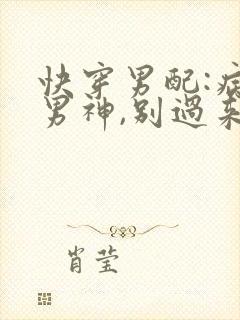 快穿男配:病
男神,别過来
肖莹